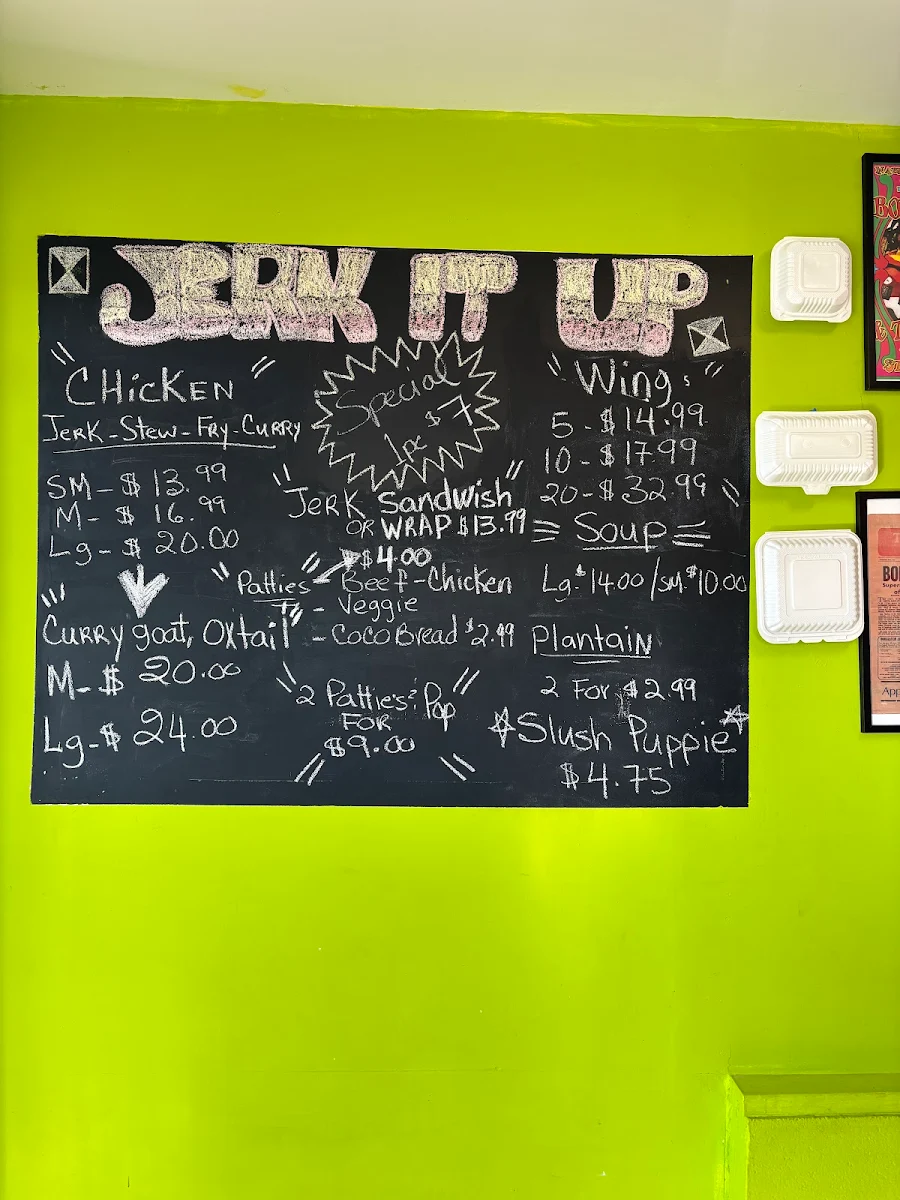 JERK IT UP
"CHICKEN"
JERK - STEW - FRY - CURRY
SM - $ 13.99
M - $ 16.99
Lg - $ 20.00
CURRY goat, Oxtail
M - $ 20.00
Lg - $ 24.00
Special
1pc $7
"JERK Sandwish"
OR WRAP $13.99
$4.00
"Patties" - Beef - Chicken
- Veggie
- Coco Bread $2.99
2 Patties & Pop
FOR
$9.00
"Wings"
5 - $14.99
10 - $17.99
20 - $32.99
Soup
Lg - $14.00 / sm $10.00
Plantain
2 For $2.99
Slush Puppie
$4.75